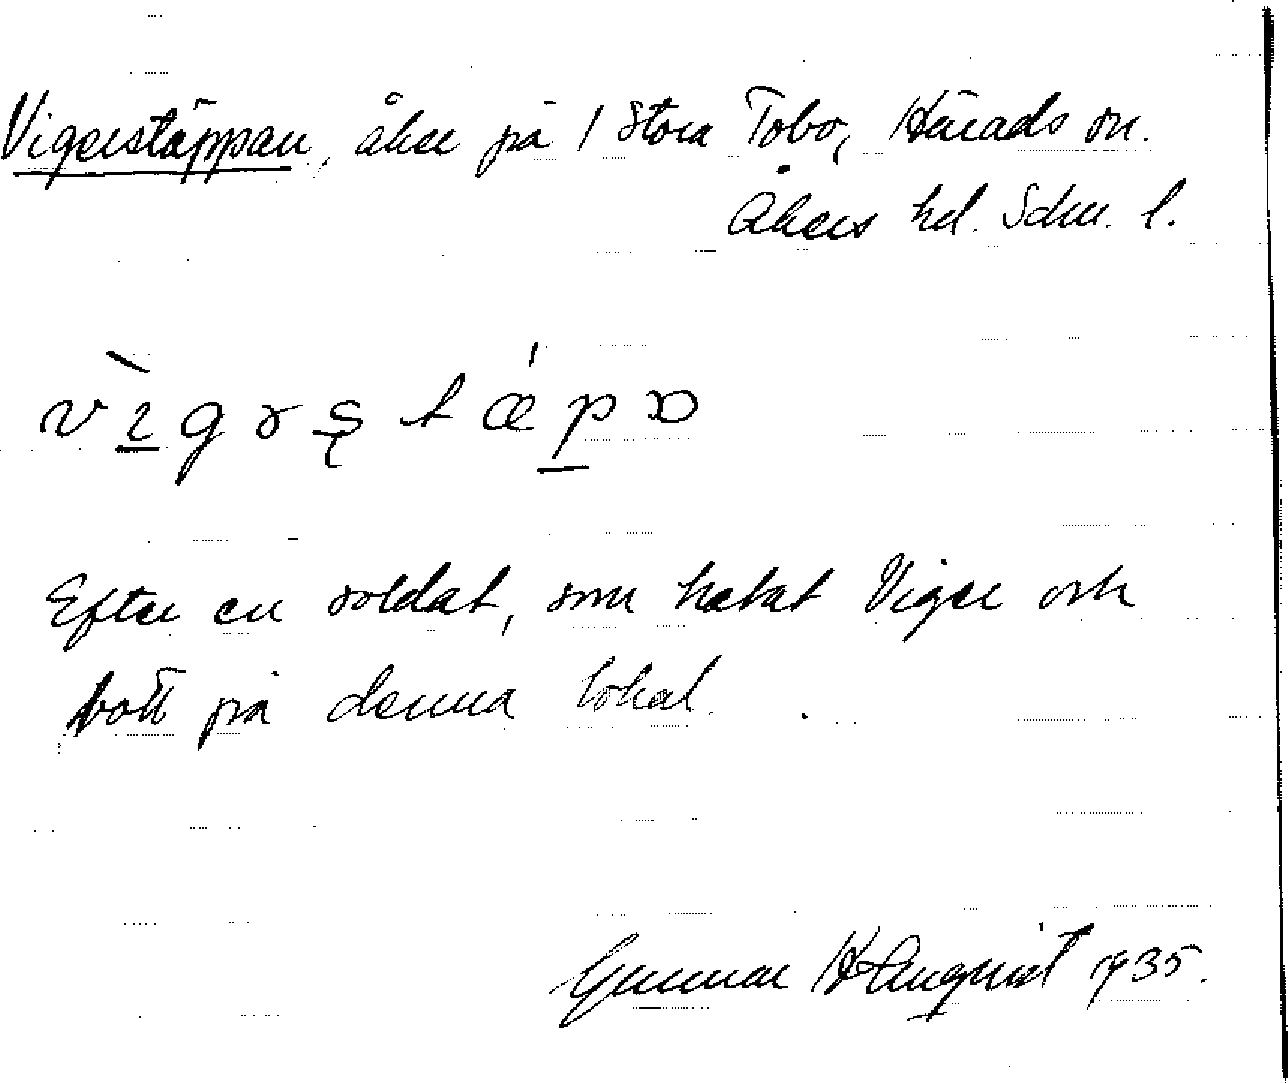 Vigerstäppan, åker på 1 Stora Tobo, Härads sn.
Åkers hd. Sdm. l.
Efter en soldat, som hetat Viger och
bott på denna lokal.
Gunnar 1935.